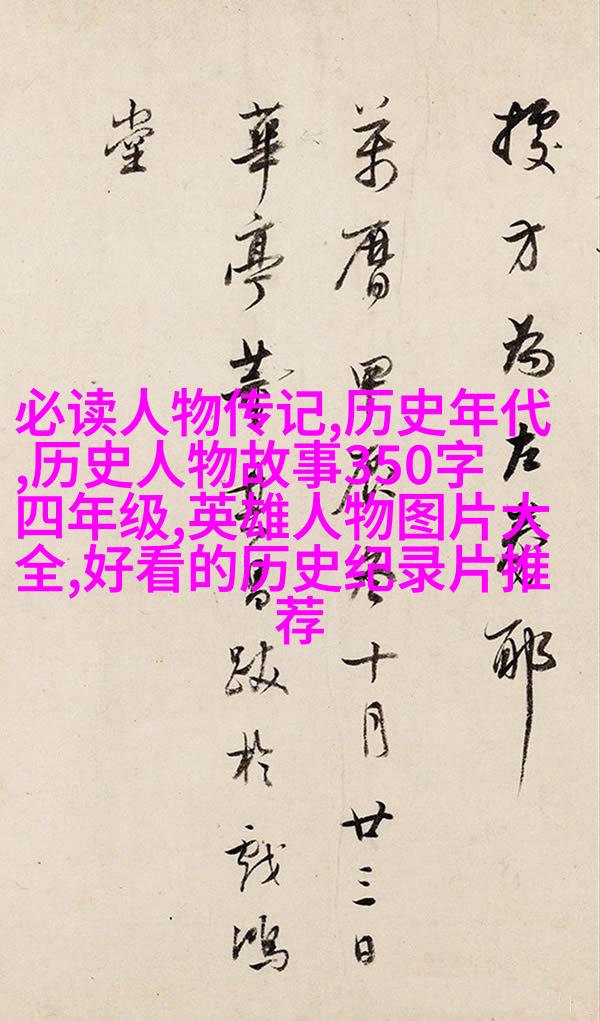 方為左耶
萬曆甲辰冬十月廿三日
華亭董其昌跋於戲鴻
堂
必读人物传记,历史年代
,历史人物故事350字
四年级,英雄人物图片大
全,好看的历史纪录片推
荐